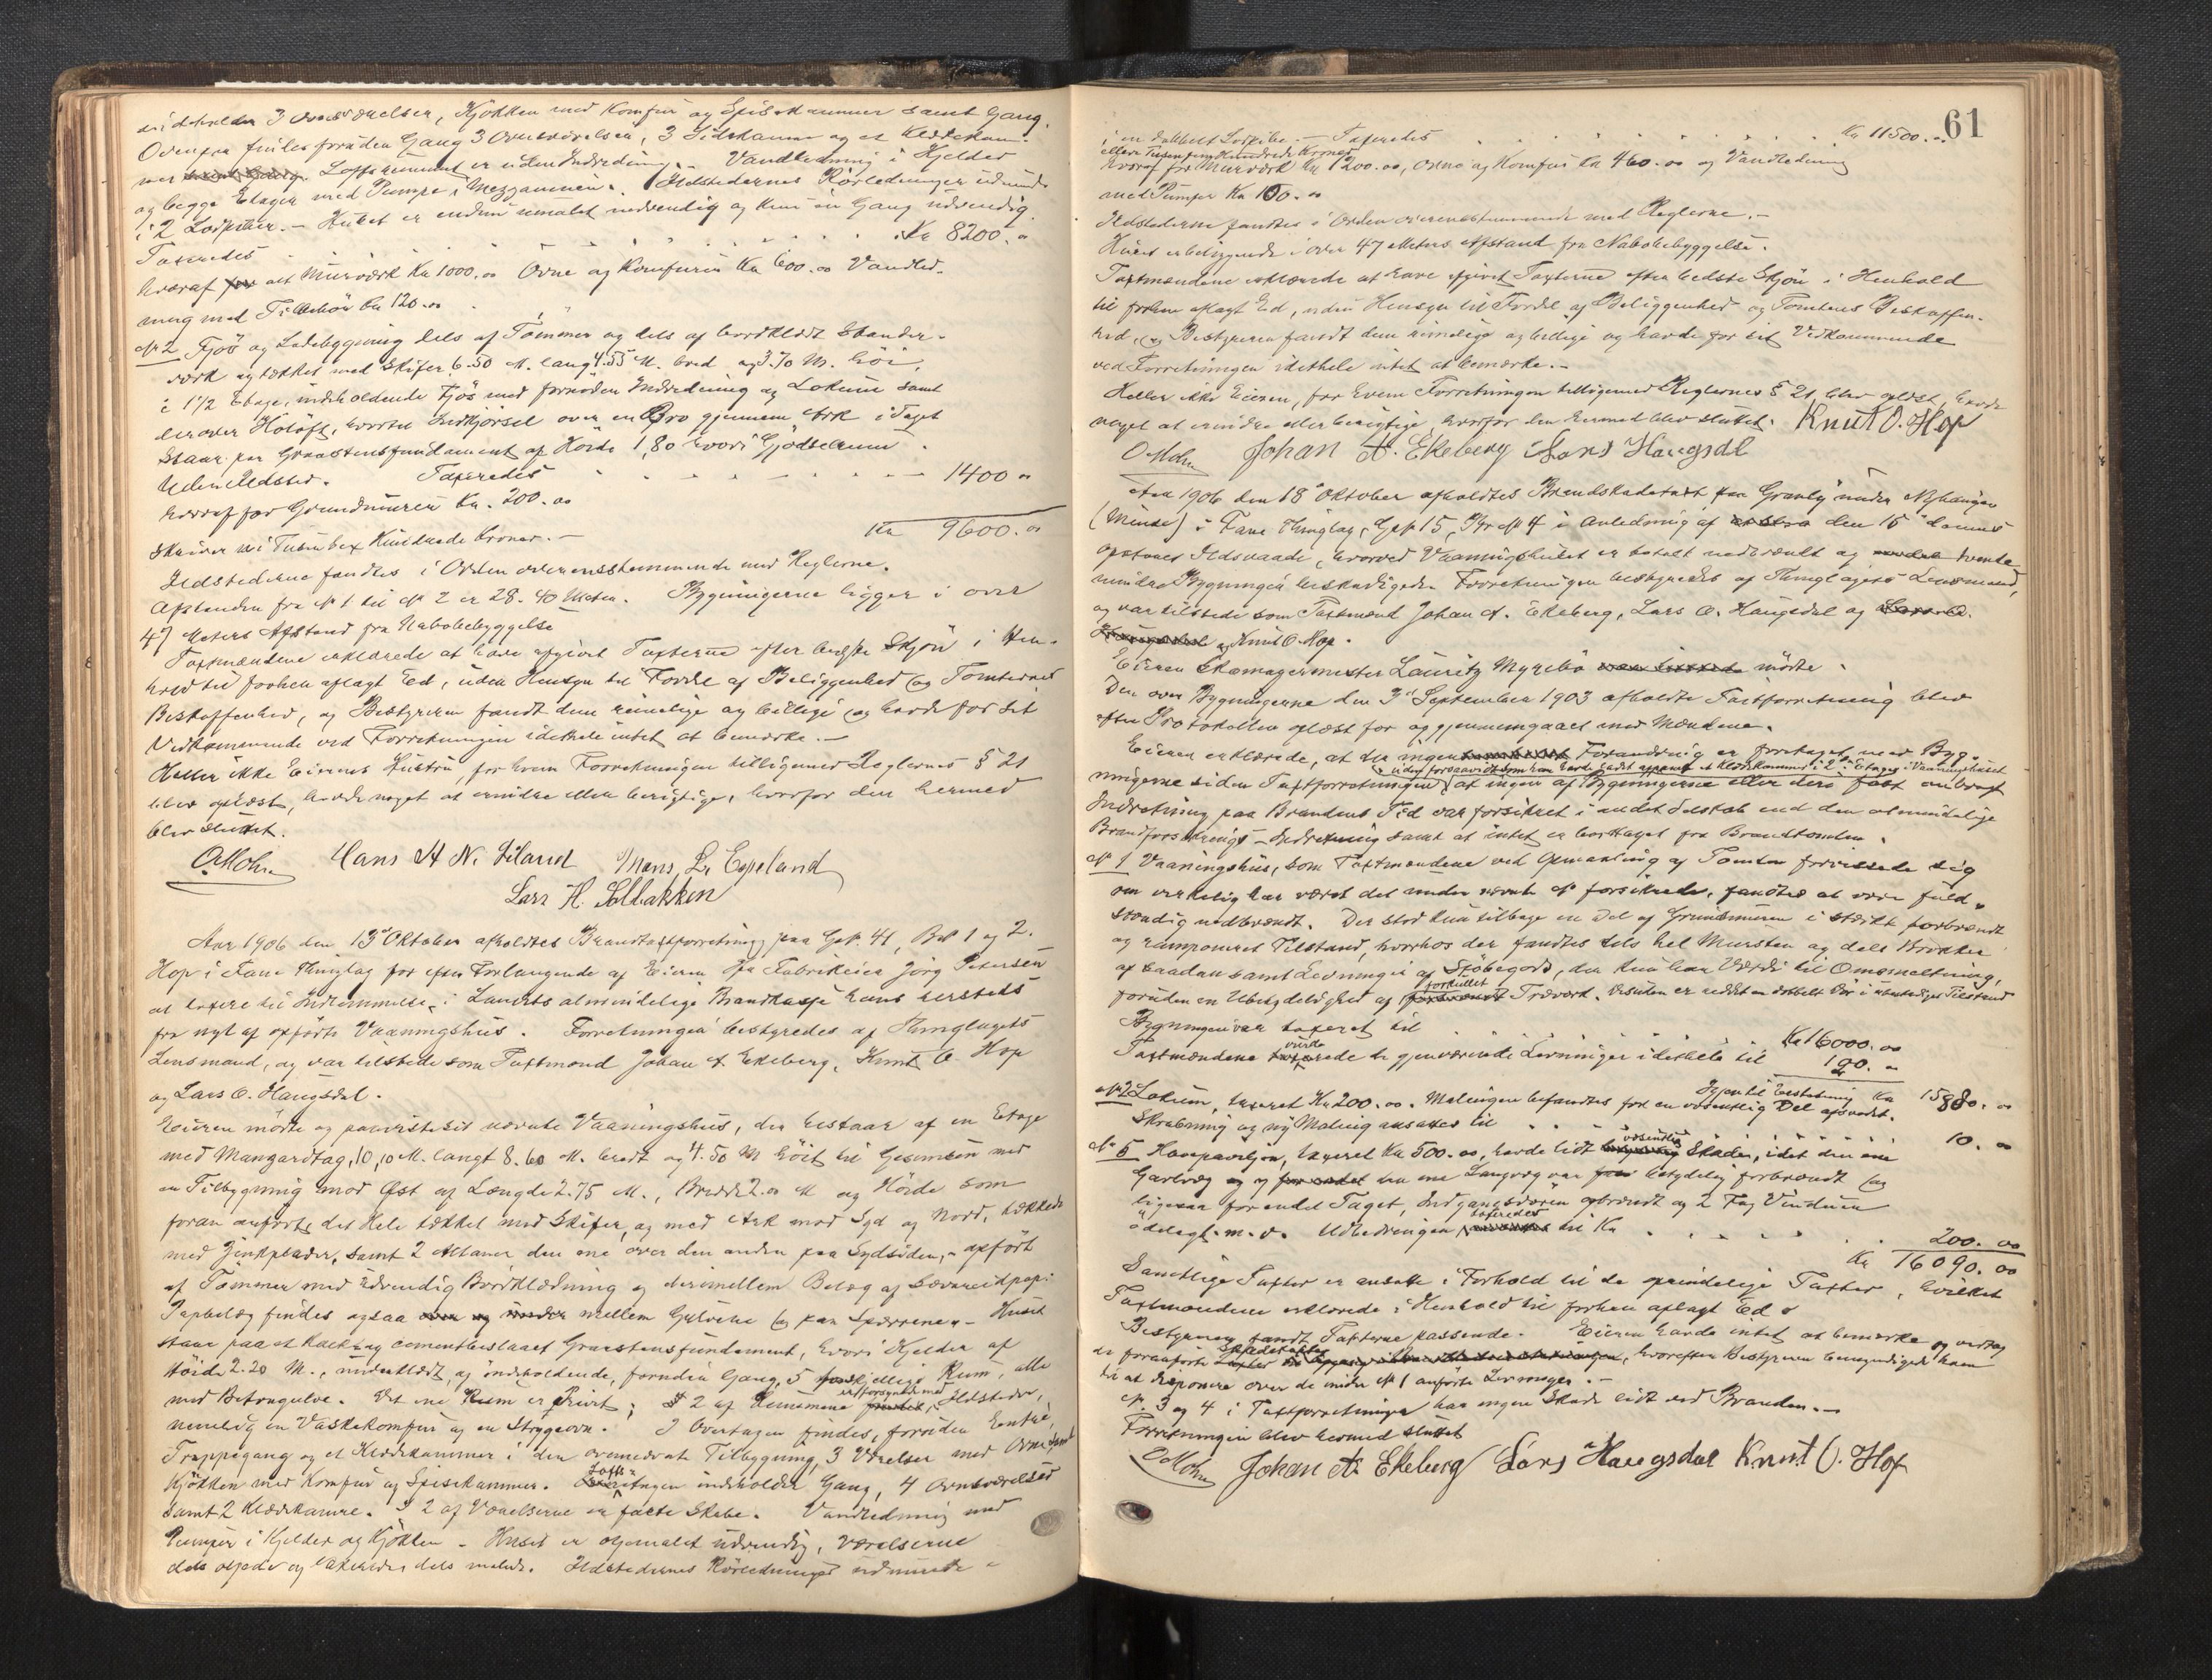 indeholder 3 Ovnsværelser, Kjökken med Komfur og Spisekammer samt Gang.
Ovenpaa findes foruden Gang 3 Ovnsværelser, 3 Sidekammer og et Klædekam-
mer Loftsrummet er uden Indredning. Vandledning i Kjelder
og begge Etager med Pumpe i Mezzaninen. Ildstedernes Rörledninger udmunde
i 2 Lodpiber. – Huset er endnu umalet indvendig og kun en Gang udvendig.
Taxeredes Kr 8200.00
hvoraf for alt Murværk Kr 1000.00 Ovne og Komfurer Kr 600.00 Vandled-
ning med Tilbehör Kr 120.00
No 2 Fjös og Ladebygning dels af Tömmer og dels af bordklædt Stander-
værk og tækket med Skifer 6.50 M. lang 4.55 M. bred og 3.70 M. höi,
i 1 1/2 Etage, indeholdende Fjös med fornöden Indredning og Lokum samt
derover Höloft, hvortil Indkjörsel over en Bro gjennem Ark i Taget
Staar paa Graastensfundament af Höide 1,80 hvori Gjödselrum.
Uden Ildsted. Taxeredes 1400.00
hvoraf for Grundmuren Kr. 200.00
Kr 9600.00
Skriver ni Tusen sex Hundrede Kroner. –
Ildstederne fandtes i Orden overensstemmende med Reglerne.
Afstanden fra No 1 til No 2 er 28.40 Meter. Bygningerne ligger i over
47 Meters Afstand fra Nabobebyggelse
Taxtmændene erklærede at have afgivet Taxterne efter bedste Skjön i Hen-
hold til forhen aflagt Ed, uden Hensyn til Fordel af Beliggenhed og Tomternes
Beskaffenhed, og Bestyreren fandt dem rimelige og billige og havde for sit
Vedkommende ved Forretningen idethele intet at bemærke. –
Heller ikke Eierens Hustru, for hvem Forretningen tilligemed Reglernes § 21
blev oplæst, havde noget at erindre eller berigtige, hvorfor den hermed
blev sluttet.
O. Mohn Hans H N. Liland Mons L. Espeland
Lars H. Solbakken
Aar 1906 den 13de Oktober afholdtes Brandtaxtforretning paa Gsk. 41, Bsk 1 og 2.
Hop i Fane Thinglag for efter Forlangende af Eieren Hr Fabrikeier Jörg Petersen
at taxere til Indlemmelse i Landets almindelige Brandkasse hans hersteds
fra nyt af opförte Vaaningshus. Forretningen bestyredes af Thinglagets
Lensmand, og var tilstede som Taxtmænd Johan A Ekeberg, Knut O. Hop
og Lars O. Haugsdal.
Eieren mödte og paaviste sit nævnte Vaaningshus, der bestaar af en Etage
med Mansardtag, 10,10 M. langt 8.60 M. bredt og 4.50 M höit til Gesimsen med
en Tilbygning mod Öst af Længde 2.75 M., Bredde 2.00 M og Höide som
foran anfört, det Hele tækket med Skifer, og med Ark mod Syd og Nord, tækkede
med Zinkplader, samt 2 Altaner den ene over den anden paa Sydsiden, – opfört
af Tömmer med udvendig Bordklædning og derimellem Belæg af
Papbelæg findes ogsaa over og under mellem Gulvene og paa Sperrerne. – Huset
staar paa et Kalk og cementbeslaaet Graastensfundament, hvori Kjelder af
Höide 2.20 M., underklædt, og indeholdende, foruden Gang, 5 forskjellige Rum, alle
med Betongulve. Det ene Rum er Privet; I 2 af Rummene er forsynede med Ildsteder,
nemlig en Vaskekomfur og en Strygeovn. I Overetagen findes, foruden Entré,
Trappegang og et Klædekammer i den ovennævnte Tilbygning, 3 Værelser med Ovne samt
Kjökken med Komfur og Spisekammer. Lofts-Etagen indeholder Gang, 4 Ovnsværelser
samt 2 Klædekamre. I 2 af Værelserne er faste Skabe. Vandledning med
Pumper i Kjelder og Kjökken – Huset er oljemalet udvendig, Værelserne
dels oljede og lakerede, dels malede. Ildstedernes Rörledninger udmunde
61
i en dobbelt Lodpibe. – Taxeredes Kr 11500.00
elleve Tusen fem Hundrede Kroner
hvoraf for Murværk Kr 1200.00, Ovne og Komfur Kr 460.00 og Vandledning
med Pumper Kr 100.00
Ildstederne fandtes i Orden overensstemmende med Reglerne. –
Huset er beliggende i over 47 Meters Afstand fra Nabobebyggelse.
Taxtmændene erklærede at have afgivet Taxterne efter bedste Skjön i Henhold
til forhen aflagt Ed, uden Hensyn til Fordel af Beliggenhed og Tomtens Beskaffen-
hed, og Bestyreren fandt dem rimelige og billige og havde for sit Vedkommende
ved Forretningen idethele intet at bemærke. –
Heller ikke Eieren, for hvem Forretningen tilligemed Reglernes § 21 blev oplæst, havde
noget at erindre eller berigtige, hvorfor den hermed blev sluttet. Knut O. Hop
O. Mohn Johan A. Ekeberg Lars Haugsdal
Aar 1906 den 18de Oktober afholdtes Brandskadetaxt paa "Granly" under Nyhaugen
(Minde) i Fane Thinglag, Gsk 15, Bsk No 4 i Anledning af den 15de dennes
opstaaet Ildsvaade, hvorved Vaaningshuset er totalt nedbrændt og tvende
mindre Bygninger beskadigede. Forretningen bestyredes af Thinglagets Lensmand,
og var tilstede som Taxtmænd Johan A. Ekeberg, Lars O. Haugsdal og Lars O.
Haugsdal og Knut O. Hop.
Eieren Skomagermester Lauritz Myrebö mödte.
Den over Bygningerne den 3de September 1903 afholdte Taxtforretning blev
efter Protokollen oplæst for og gjennemgaaet med Mændene.
Eieren erklærede, at der ingen Forandring er foretaget med Byg-
uden forsaavidt som han havde ladet et Klædekammer i 2den Etage i Vaaningshuset
ningerne siden Taxtforretningen, at ingen af Bygningerne eller dere fast anbragt
Indretning paa Brandens Tid var forsikret i andet Selskab end den almindelige
Brandforsikrings-Indretning samt at intet er borttaget fra Brandtomten.
No 1 Vaaningshus, som Taxtmændene ved Opmaaling af Tomten forvissede sig
om virkelig har været det under nævnte No forsikrede, fandtes at være fuld-
stændig nedbrændt. Der stod kun tilbage en Del af Grundmuren i stærkt forbrændt
og ramponeret Tilstand, hvorhos der fandtes dels hel Mursten og dels Brokker
af saadan samt Levninger af Stöbegods, der kun har Værdi til Omsmeltning,
foruden en Ubetydelighed af forkullet Træværk. Desuden er reddet en dobbelt Dör i ubeskadiget Tilstand
Bygningen var taxeret til Kr 16000.00
Taxtmændene vurderede de gjenværende Levninger idethele til 120.00
Igjen til Erstatning Kr 15880.00
No 2 Lokum, taxeret Kr 200.00. Malingen befandtes for en væsentlig Del afsvedet.
Skrabning og ny Maling ansattes til 10.00
No 5 Havepavillon, taxeret Kr 500.00, havde lidt væsentlig Skade, idet den ene
Gavlvæg og den ene Langvæg var betydelig forbrændt og
ligesaa for endel Taget, Indgangsdören opbrændt og 2 Fag Vinduer
ödelagt m. v. Udbedringen taxeredes til Kr 200.00
Kr 16090.00
Samtlige Taxter er ansatte i Forhold til de oprindelige Taxter, hvilket
Taxtmændene erklærede i Henhold til forhen aflagt Ed
Bestyreren fandt Taxterne passende. Eieren havde intet at bemærke og vedtog
de foranförte Skadetaxter, hvorefter Bestyreren bemyndigede ham
til at disponere over de under No 1 anförte Levninger. –
No 3 og 4 i Taxtforretningen har ingen Skade lidt ved Branden. –
Forretningen blev hermed sluttet
O. Mohn Johan A. Ekeberg Lars Haugsdal Knut O. Hop